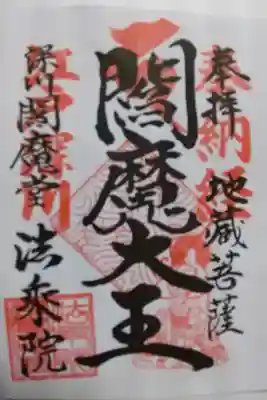 奉拝
地蔵菩薩
奉納経
閻魔大王
江戸深川
深川閻魔堂
法乗院